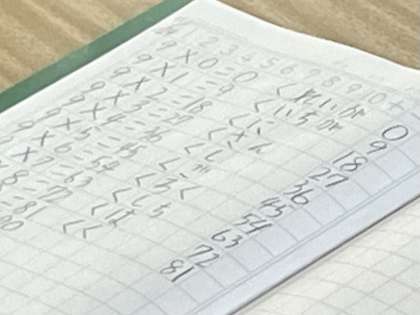 1 2 3 4 5 6 7 8 9 0
9×0=0 くれいが 0
9×1=9 くいちが 9
9×2=18 くに 18
9×3=27 くさん 27
9×4=36 くし 36
9×5=45 くご 45
9×6=54 くろく 54
×7=63 くしち 63
8=72 くは 72
=81 くく 81
90